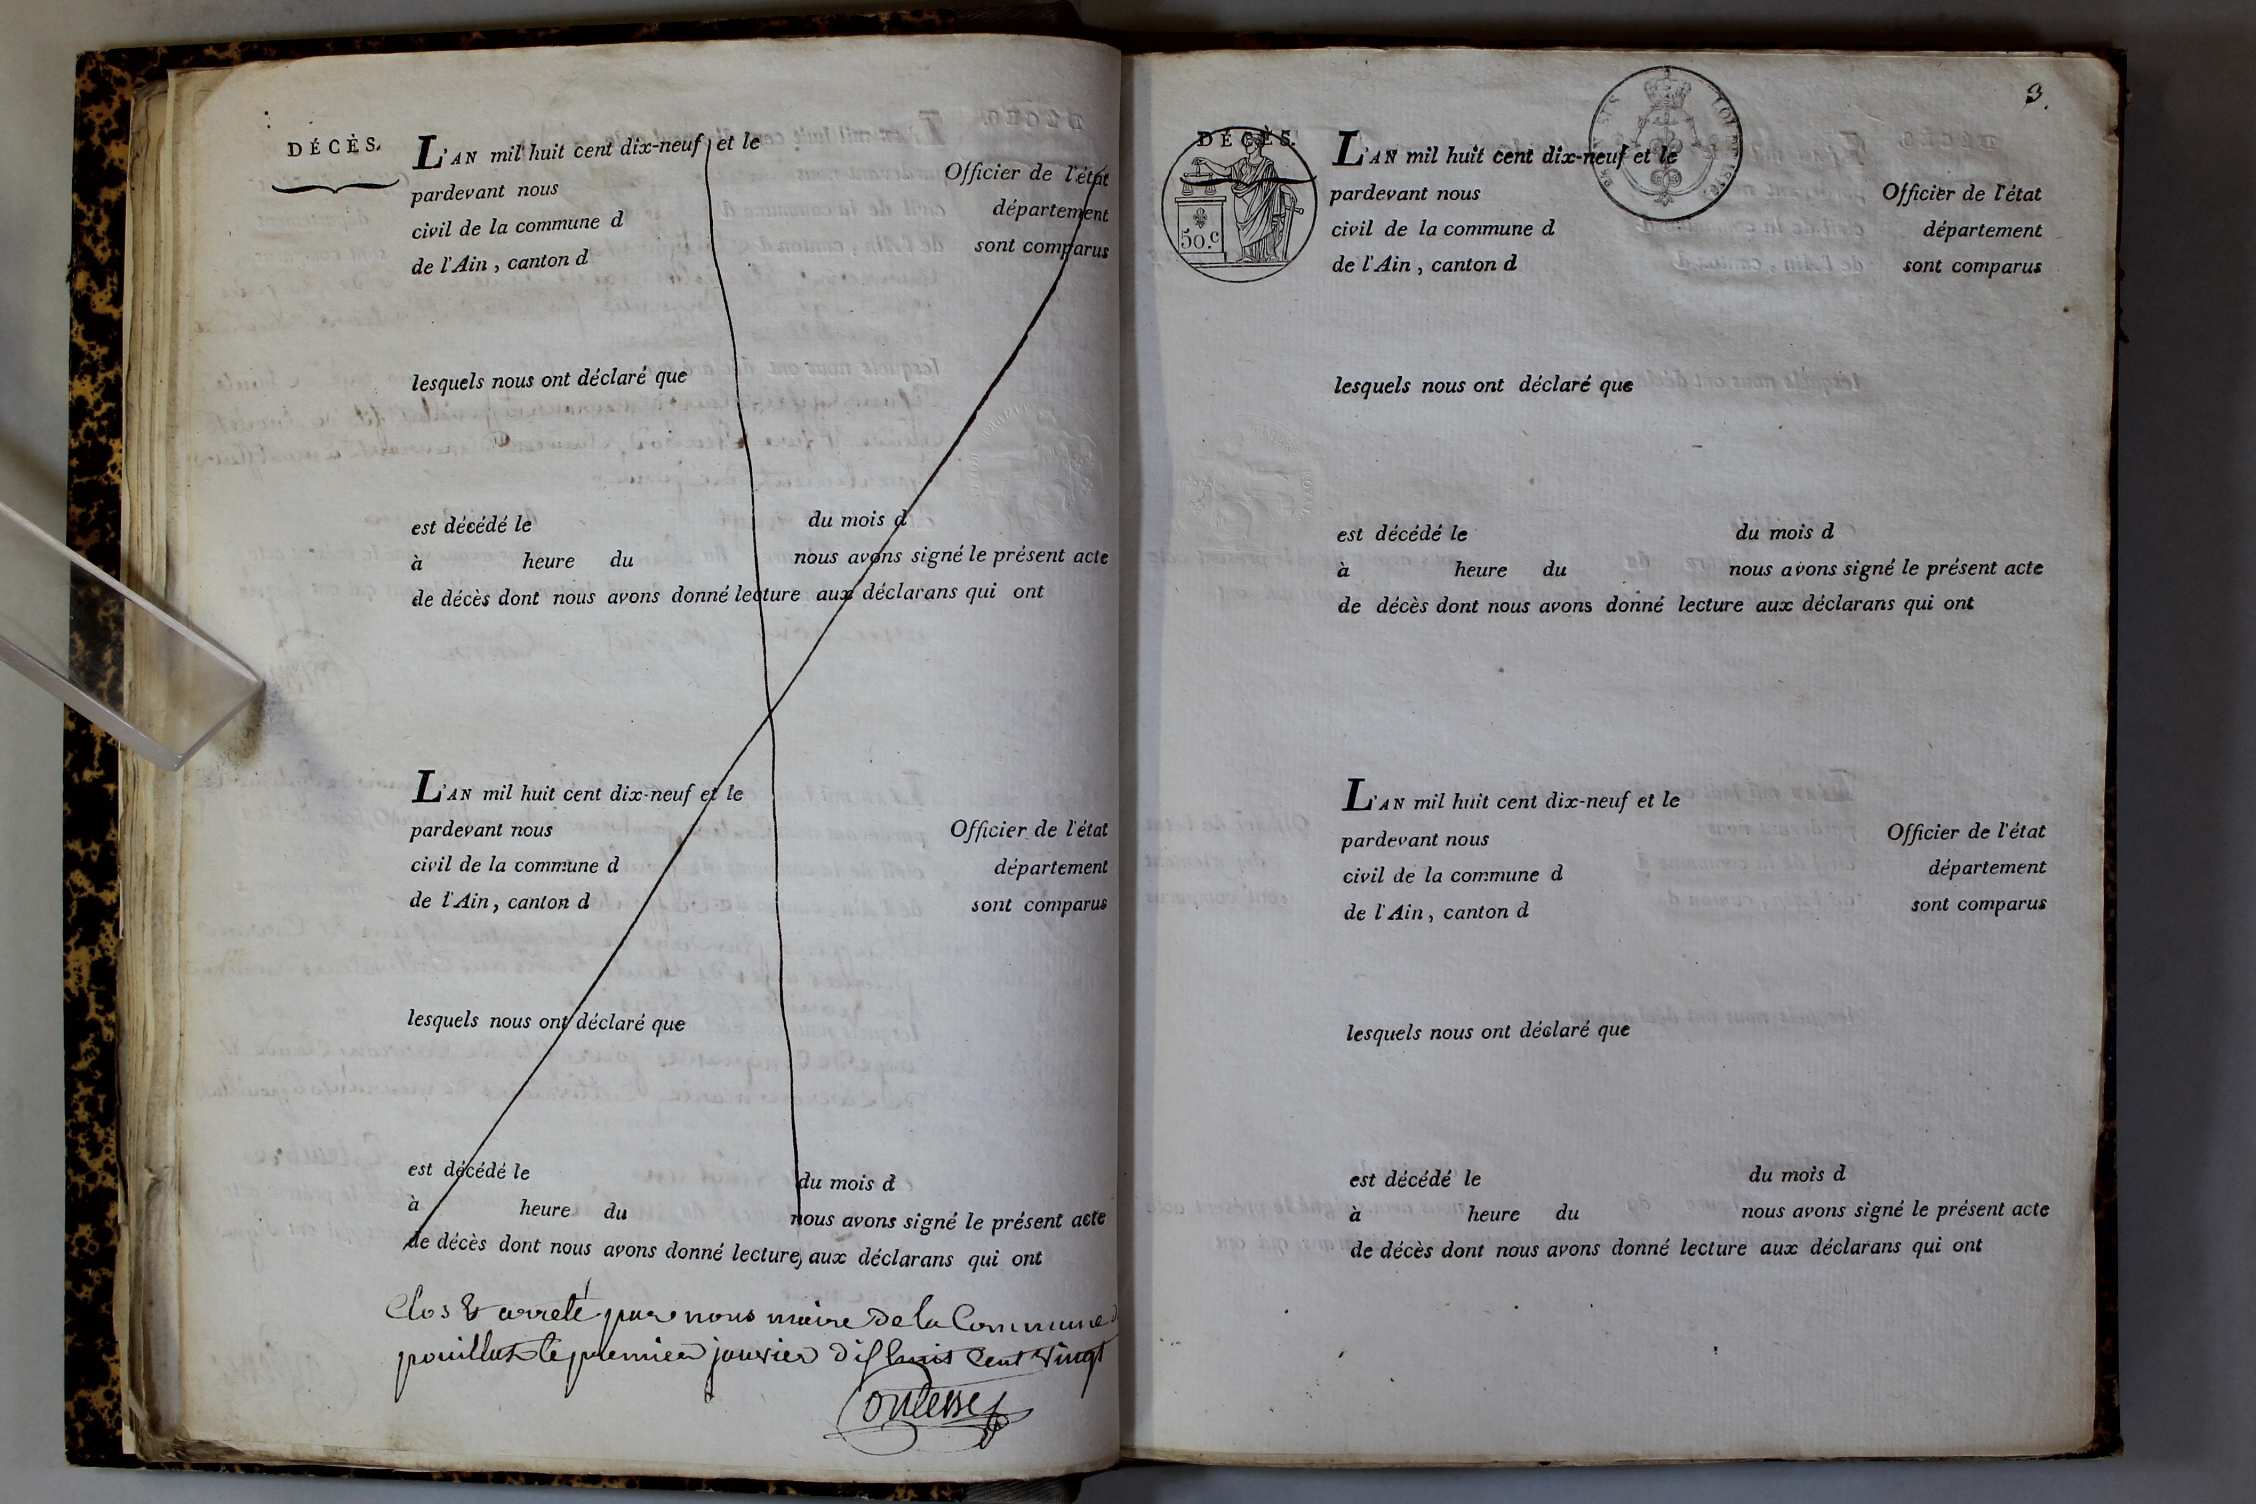 DÉCÈS.
L'AN mil huit cent dix-neuf et le
pardevant nous Officier de l'état
civil de la commune d département
de l'Ain, canton d sont comparus
lesquels nous ont déclaré que
est décédé le du mois d
à heure du nous avons signé le présent acte
de décès dont nous avons donné lecture aux déclarans qui ont
L'AN mil huit cent dix-neuf et le
pardevant nous Officier de l'état
civil de la commune d département
de l'Ain, canton d sont comparus
lesquels nous ont déclaré que
est décédé le du mois d
à heure du nous avons signé le présent acte
de décès dont nous avons donné lecture aux déclarans qui ont
Clos & arreté par nous maire de la Commune d
pouillat le premier janvier dix huit cent vingt
3.
DÉCÈS.
50.c
L'AN mil huit cent dix-neuf et le
pardevant nous Officier de l'état
civil de la commune d département
de l'Ain, canton d sont comparus
lesquels nous ont déclaré que
est décédé le du mois d
à heure du nous avons signé le présent acte
de décès dont nous avons donné lecture aux déclarans qui ont
L'AN mil huit cent dix-neuf et le
pardevant nous Officier de l'état
civil de la commune d département
de l'Ain, canton d sont comparus
lesquels nous ont déclaré que
est décédé le du mois d
à heure du nous avons signé le présent acte
de décès dont nous avons donné lecture aux déclarans qui ont